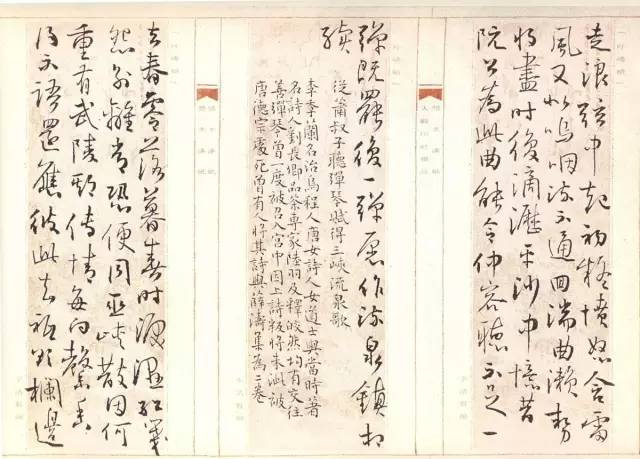 走浪弦中起初疑憤怒含雷
風又似嗚咽流不通回湍曲瀨勢
將盡時復滴瀝平沙中憶昔
阮公為此曲能令仲容聽不足一
彈既罷復一彈願作流泉鎮相
續
從蕭叔子聽彈琴賦得三峽流泉歌
李季蘭名冶烏程人唐女詩人女道士與當時著
名詩人劉長卿品茶專家陸羽及釋皎然均有交往
善彈琴曾一度被召入宮中因上詩叛將朱泚被
唐德宗處死曾有人將其詩與薛濤集為二卷
去春零落暮春時淚濕紅箋
怨別離常恐便同巫峽散因何
重有武陵期傳情每向馨香
得不語還應彼此知祇欲欄邊